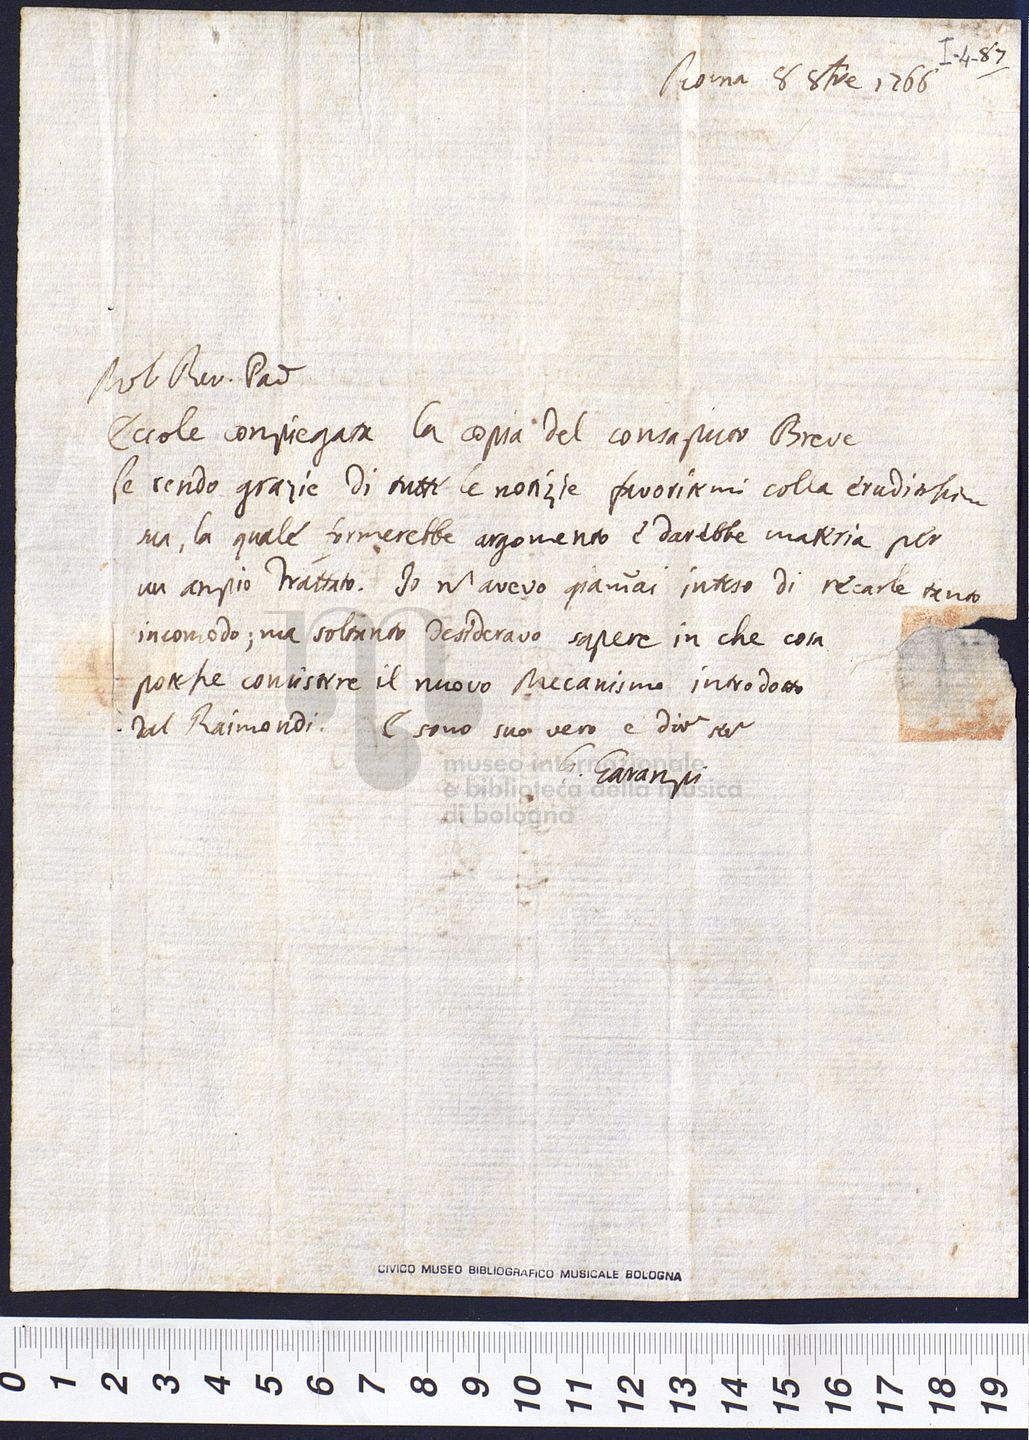 I-4-87
Roma 8 8bre 1766
Mol Rev. Pad
Eccole compiegata la copia del consaputo Breve
Le rendo grazie di tutte le notizie favoritemi colla eruditissim
sua, la quale formerebbe argomento e darebbe materia per
un ampio Trattato. Io nō avevo giam̄ai inteso di recarle tanto
incomodo; ma soltanto desideravo sapere in che cosa
potesse consistere il nuovo Mecanismo introdotto
dal Raimondi. E sono suo vero e div ser
G. Garampi
museo internazionale
e biblioteca della musica
di bologna
CIVICO MUSEO BIBLIOGRAFICO MUSICALE BOLOGNA
0 1 2 3 4 5 6 7 8 9 10 11 12 13 14 15 16 17 18 19